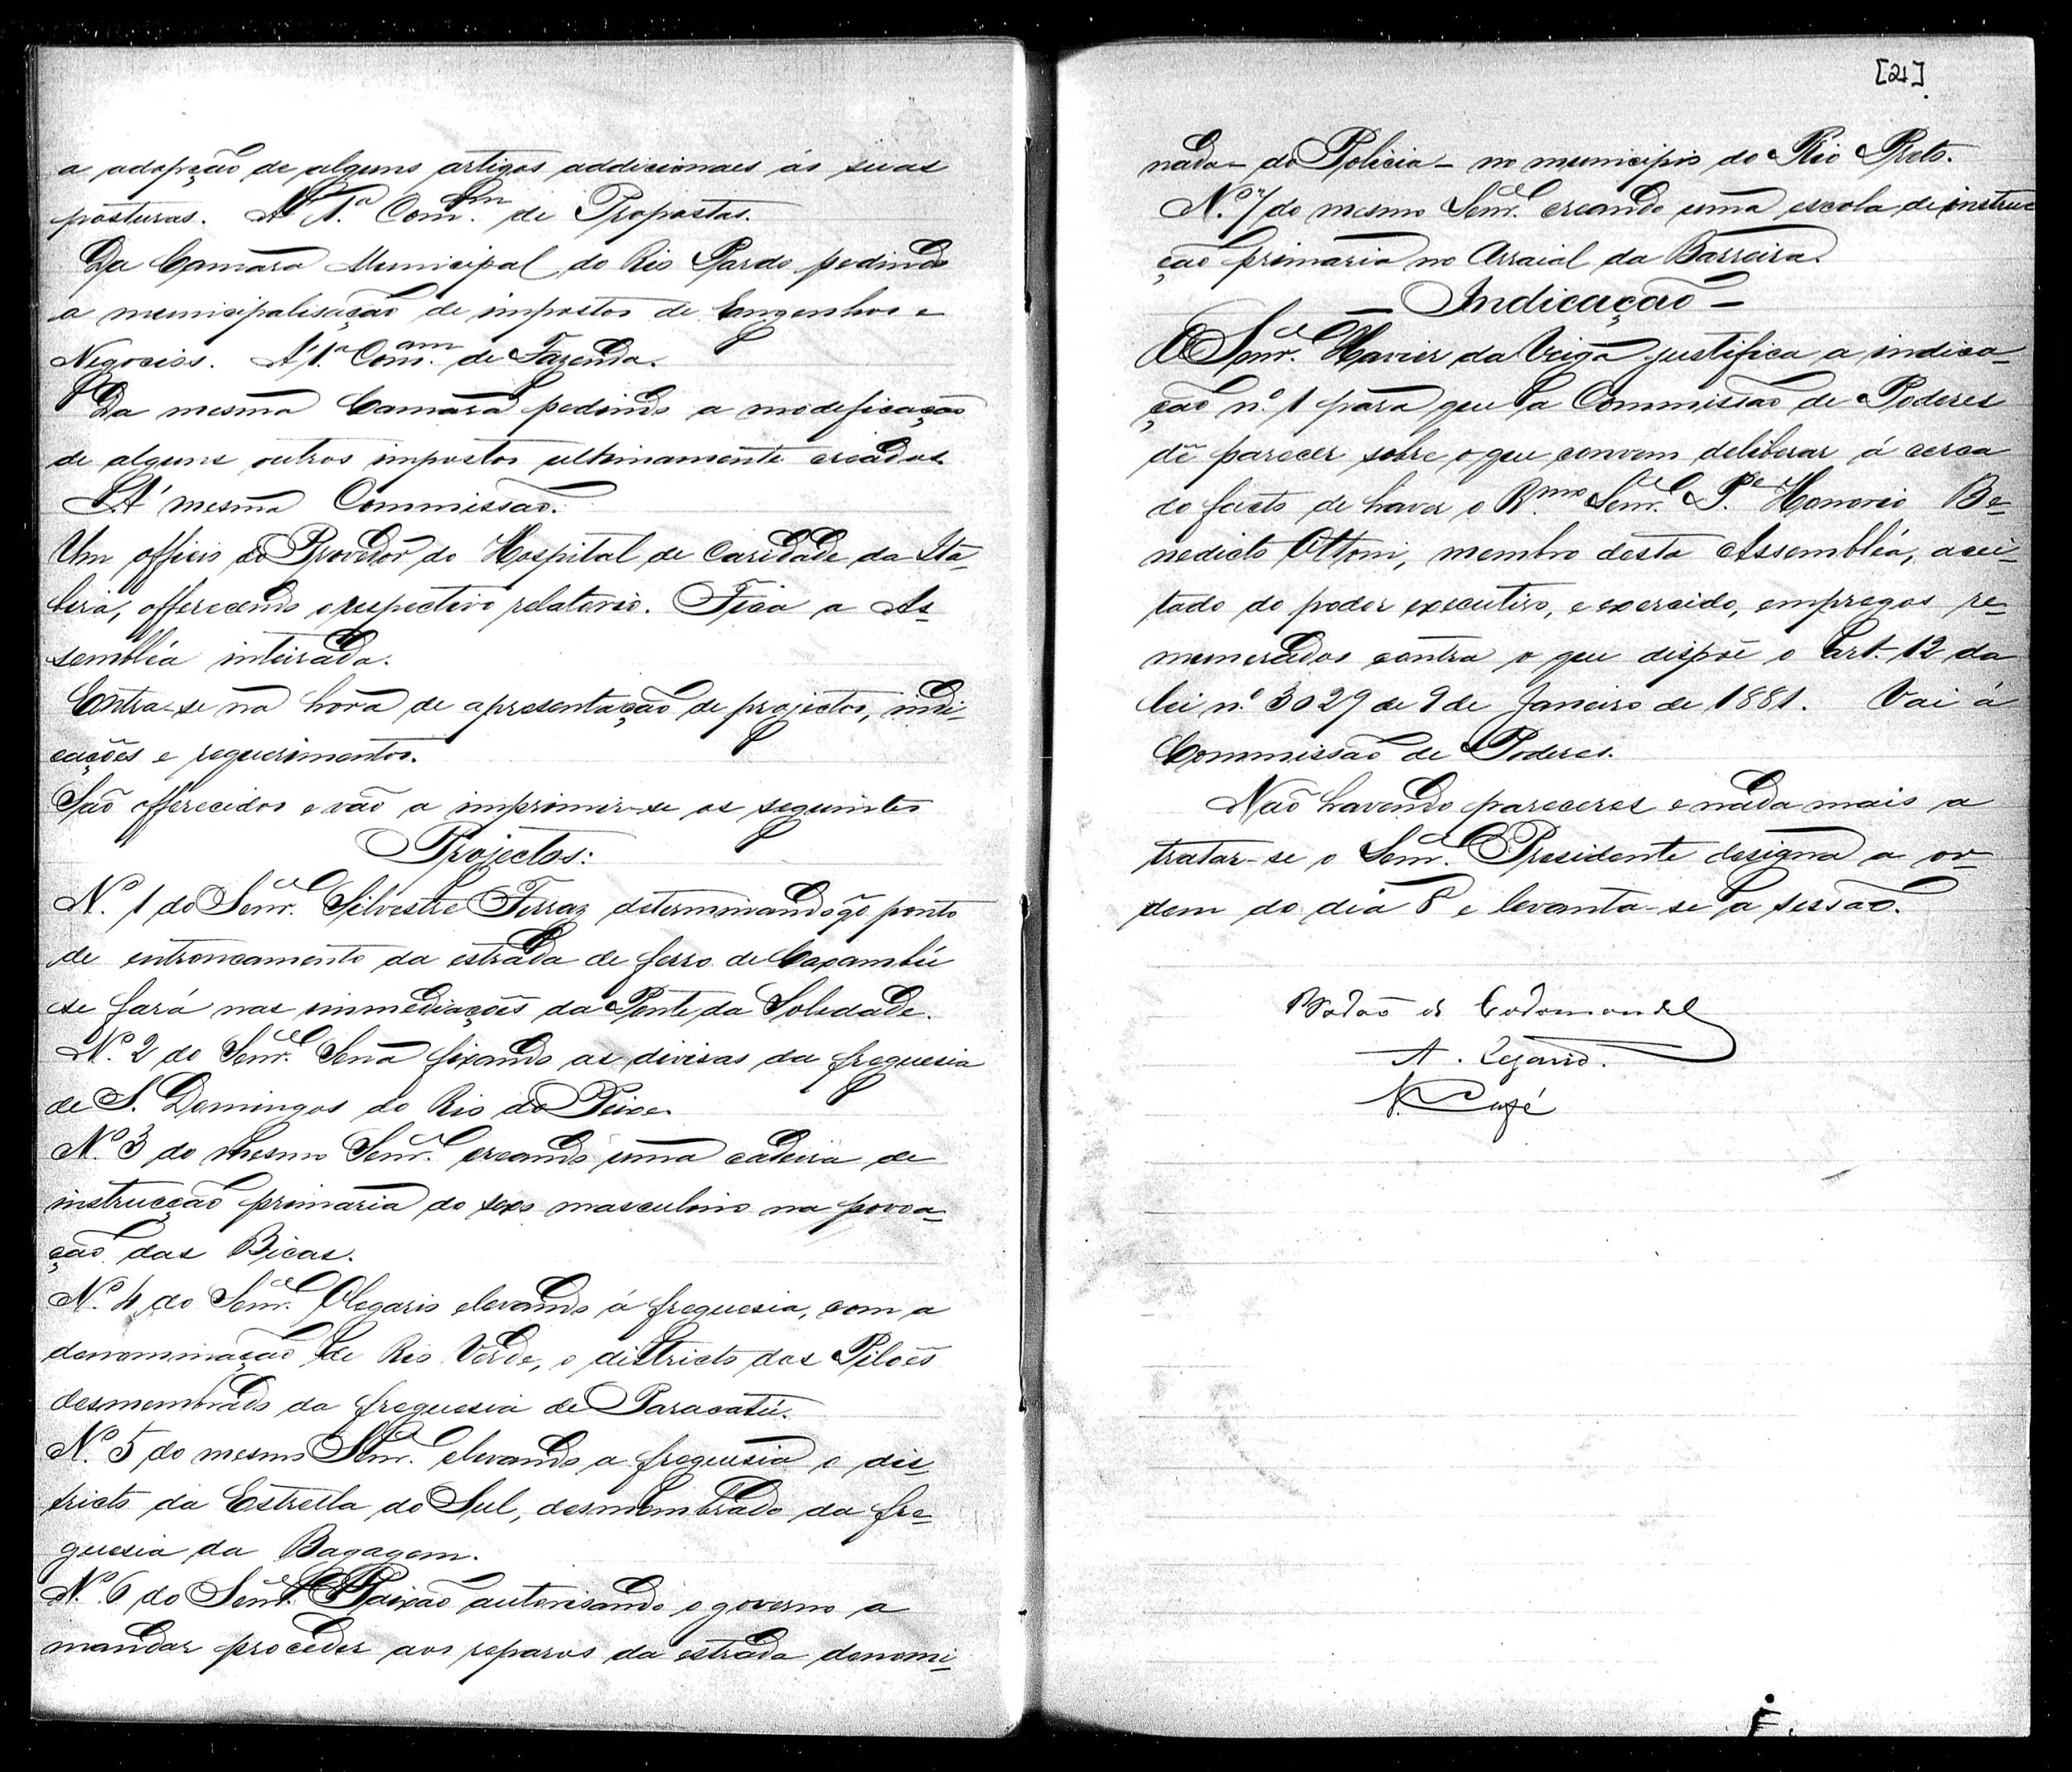 a adopção de alguns artigos addicionaes ás suas
posturas. Á 1.ª Com.am de Propostas.
Da Camara Municipal do Rio Pardo pedindo
a municipalisação de impostos de Engenhos e
Negocios. Á 1.ª Com.am de Fazenda.
Da mesma Camara pedindo a modificação
de alguns outros impostos ultimamente creados.
Á mesma Commissão.
Um officio do Provedor do Hospital de Caridade da Ita-
bira, offerecendo o respectivo relatorio. Fica a As-
sembléa inteirada.
Entra-se na hora de apresentação de projectos, indi-
cações e requerimentos.
São offerecidos e vão a imprimir-se os seguintes
Projectos:
N.º 1 do Senr. Silvestre Ferraz determinando q̃ o ponto
de entroncamento da estrada de ferro de Caxambú
se fará nas immediações da Ponte da Soledade.
N.º 2 do Senr. Sena fixando as divisas da freguesia
de S. Domingos do Rio do Peixe.
N.º 3 do mesmo Senr. creando uma cadeira de
instrucção primaria do sexo masculino na povoa-
ção das Bicas.
N.º 4 do Senr. Olegario elevando á freguesia, com a
denominação de Rio Verde, o districto dos Pilões
desmembrado da freguesia de Paracatú.
N.º 5 do mesmo Senr. elevando a freguesia o dis-
tricto da Estrella do Sul, desmembrado da fre-
guesia da Bagagem.
N.º 6 do Senr. Paixão autorisando o governo a
mandar proceder aos reparos da estrada denomi-
[21]
nada - do Policia - no municipio do Rio Preto.
N.º 7 do mesmo Senr. creando uma escola de instruc
ção primaria no Arraial da Barreira.
- Indicação -
O Senr. Xavier da Veiga justifica a indica-
ção n.º 1 para que a Commissão de Poderes
dê parecer sobre o que convem deliberar á cerca
do facto de haver o R.mo Senr. P.e Honorio Be-
nedicto Ottoni, membro desta Assembléa, acei-
tado do poder executivo, e exercido, empregos re-
munerados contra o que dispõe o Art. 12 da
lei n.º 3029 de 9 de Janeiro de 1881. Vai á
Commissão de Poderes.
Não havendo pareceres e nada mais a
tratar-se o Senr. Presidente designa a or-
dem do dia 8 e levanta-se a sessão.
Barão de Coromandel
A. Cezario.